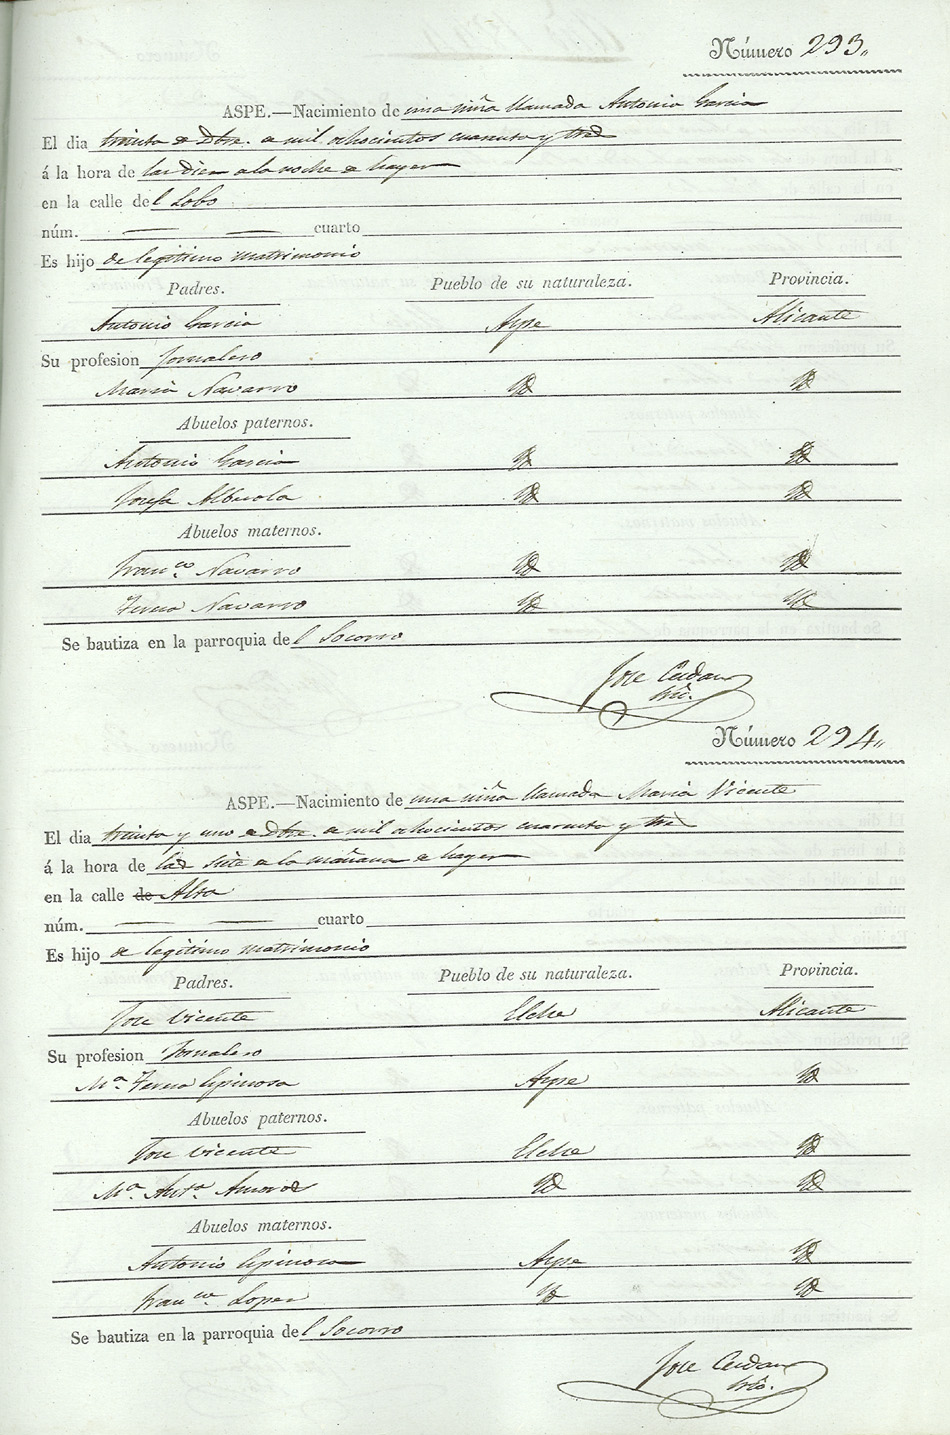 Número 293.
ASPE.—Nacimiento de una niña llamada Antonia Garcia
El dia treinta de Dbre. de mil ochocientos cuarenta y tres
á la hora de las diez de la noche de hayer
en la calle del Lobo
núm. — — cuarto
Es hijo de legitimo matrimonio
Padres. Pueblo de su naturaleza. Provincia.
Antonio Garcia Aspe Alicante
Su profesion Jornalero
Maria Navarro Yd Yd
Abuelos paternos.
Antonio Garcia Yd Yd
Josefa Alberola Yd Yd
Abuelos maternos.
Franco. Navarro Yd Yd
Teresa Navarro Yd Yd
Se bautiza en la parroquia del Socorro
Jose Cerdan
Srio.
Número 294.
ASPE.—Nacimiento de una niña llamada Maria Vicente
El dia treinta y uno de Dbre. de mil ochocientos cuarenta y tres
á la hora de las siete de la mañana de hayer
en la calle de Alta
núm. — — cuarto
Es hijo de legitimo matrimonio
Padres. Pueblo de su naturaleza. Provincia.
Jose Vicente Elche Alicante
Su profesion Jornalero
Ma. Teresa Espinosa Aspe Yd
Abuelos paternos.
Jose Vicente Elche Yd
Ma. Anta. Amoros Yd Yd
Abuelos maternos.
Antonio Espinosa Aspe Yd
Franca. Lopez Yd Yd
Se bautiza en la parroquia del Socorro
Jose Cerdan
Srio.